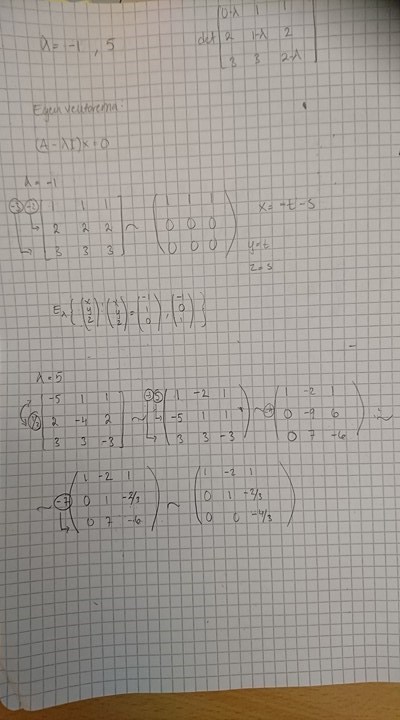 λ = -1, 5
det [0-λ 1 1
2 1-λ 2
3 3 2-λ]
Egenvektorerna:
(A - λI)x = 0
λ = -1
[1 1 1
2 2 2
3 3 3] ~ (1 1 1
0 0 0
0 0 0)
x = -t - s
y = t
z = s
E_λ { (x y z) : (x y z) = (-1 1 0), (-1 0 1) }
λ = 5
[-5 1 1
2 -4 2
3 3 -3] ~ (1 -2 1
-5 1 1
3 3 -3) ~ (1 -2 1
0 -9 6
0 7 -6) ~
~ (1 -2 1
0 1 -2/3
0 7 -6) ~ (1 -2 1
0 1 -2/3
0 0 -4/3)